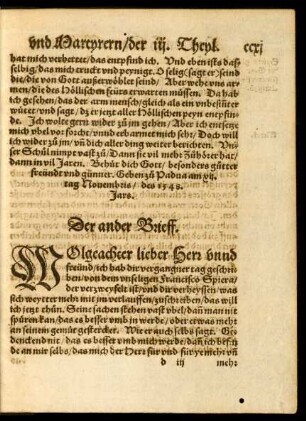 vnd Martyrern/der iij. Theyl. ccxj
hat mich verhertet/das entpfind ich. Vnd eben ists das
selbig/das mich truckt vnd peynigt. O selig (sagt er) seind
die/die von Gott außerwöhlet seind/ Aber weht vns ar-
men/die des Höllischen feürs erwarten müssen. Da hab
ich gesehen/das der arm mensch/gleich als ein vnbestüter
wütet/vnd sagt/ dz er jetzt aller Höllischen peyn entpfin-
de. Ich wolte gern wider zů im gehen/ Aber ich entsetze
mich vbel vor forcht/vnnd erbarmet mich sehr/ Doch will
ich wider zů jm/vñ dich aller ding weiter berichten. Vn-
ser Schůl nimpt vast zů/Dann sie vil mehr Zůhörer hat/
dann in vil Jaren. Behüt dich Gott/ besonders gůter
freündt vnd günner. Geben zů Padua am vij.
tag Nouembris/ des 1548.
Jars.
Der ander Brieff.
WOlgeachter lieber Herr vnnd
freünd/ich hab dir vergangner tag geschri-
ben/von dem vnseligen Francisco Spiera/
der verzweyfelt ist/vnd dir verheyssen/was
sich weytter mehr mit jm verlauffen/zůschreiben/das will
ich jetzt thůn. Seine sachen stehen vast vbel/dañ man nit
spüren kan/das es besser vmb in werde/ oder etwas mehr
an seinem gemüt gestercket. Wie er auch selbs sagt. Ge-
denck endnit/ das es besser vmb mich werde/dañ ich befin-
de an mir selbs/das mich der Herr für vnd für ye mehr vñ
d iij mehr